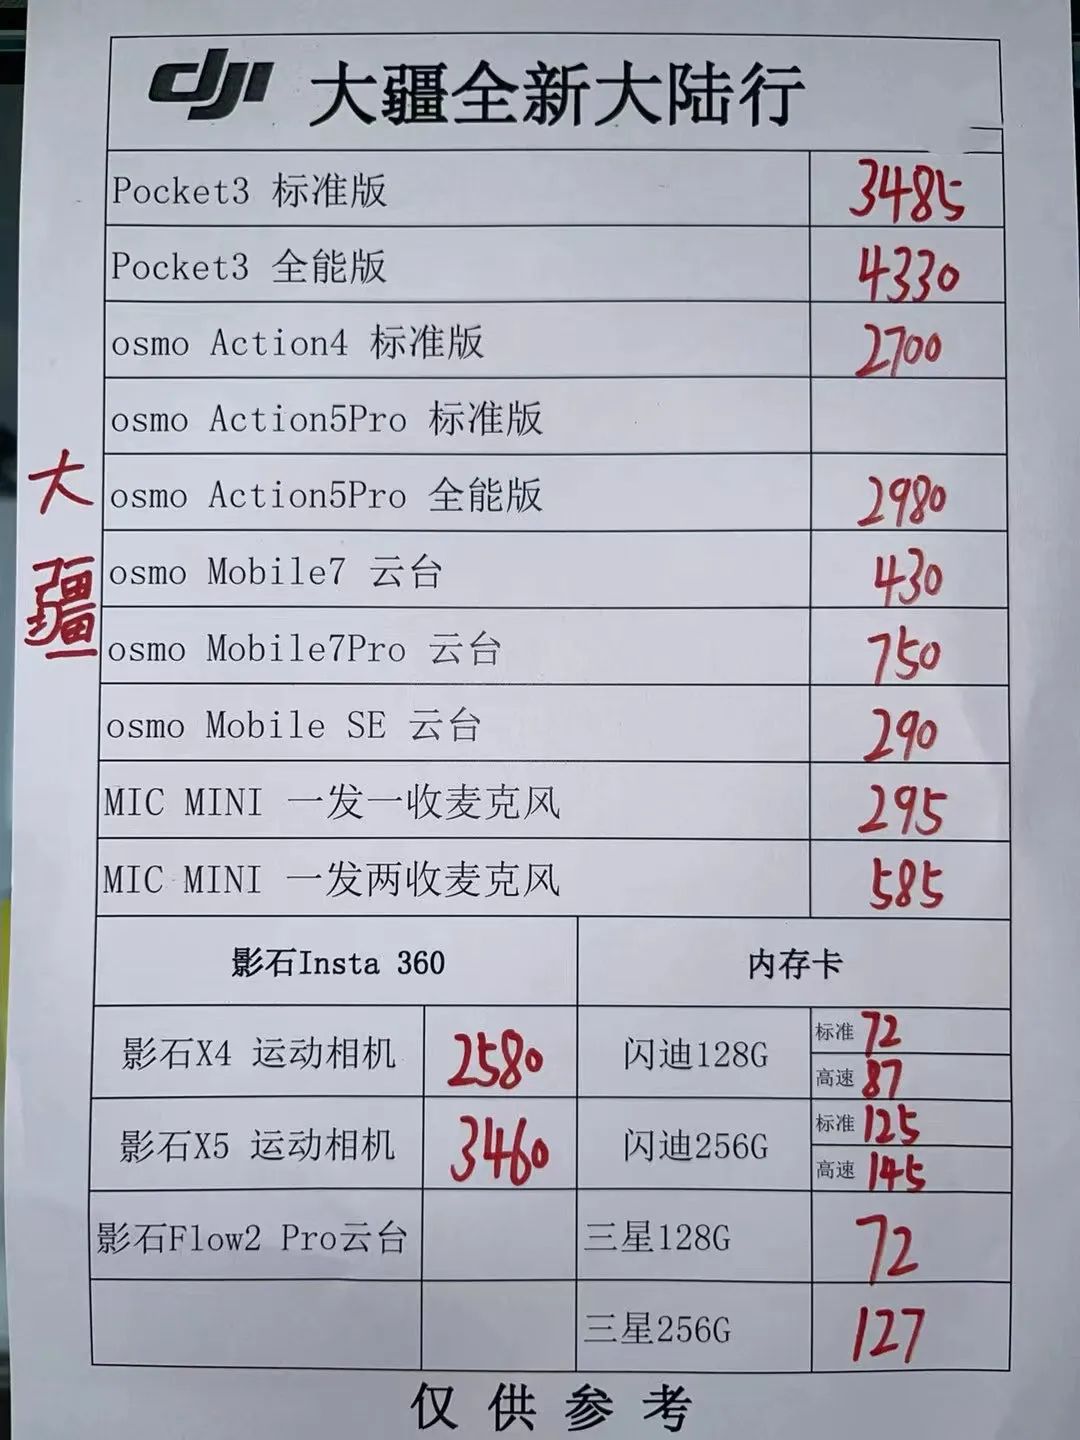 dji 大疆全新大陆行
Pocket3 标准版 3485
Pocket3 全能版 4330
osmo Action4 标准版 2700
osmo Action5Pro 标准版
osmo Action5Pro 全能版 2980
osmo Mobile7 云台 430
osmo Mobile7Pro 云台 750
osmo Mobile SE 云台 290
MIC MINI 一发一收麦克风 295
MIC MINI 一发两收麦克风 585
大疆
影石Insta 360 内存卡
影石X4 运动相机 2580 闪迪128G 标准 72
高速 87
影石X5 运动相机 3460 闪迪256G 标准 125
高速 145
影石Flow2 Pro云台 三星128G 72
三星256G 127
仅供参考